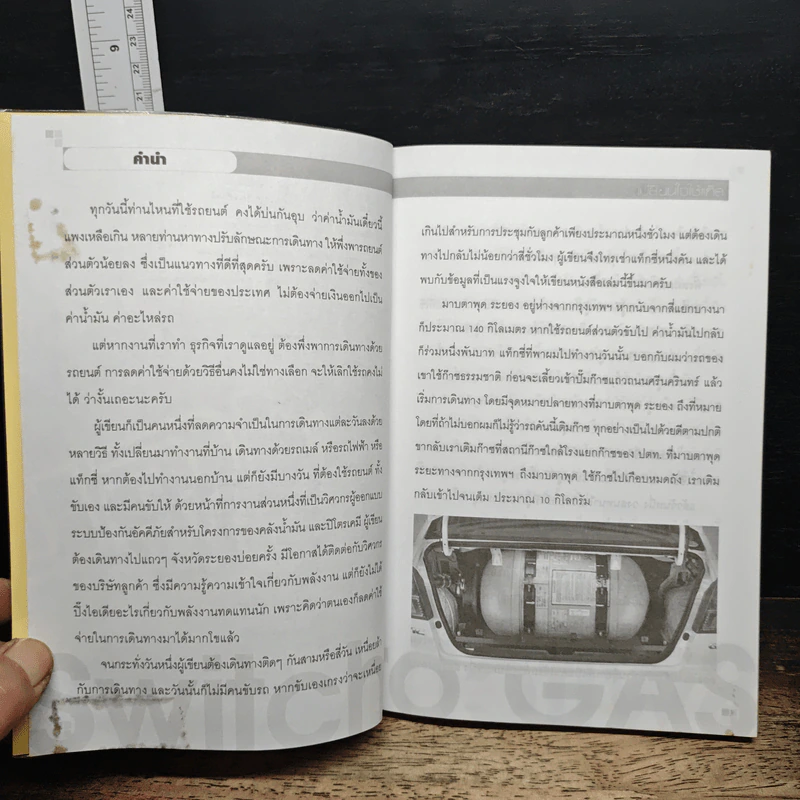 9
24
23
22
21
คำนำ
ทุกวันนี้ท่านไหนที่ใช้รถยนต์ คงได้บ่นกันอุบ ว่าค่าน้ำมันเดี๋ยวนี้
แพงเหลือเกิน หลายท่านหาทางปรับลักษณะการเดินทาง ให้พึ่งพารถยนต์
ส่วนตัวน้อยลง ซึ่งเป็นแนวทางที่ดีที่สุดครับ เพราะลดค่าใช้จ่ายทั้งของ
ส่วนตัวเราเอง และค่าใช้จ่ายของประเทศ ไม่ต้องจ่ายเงินออกไปเป็น
ค่าน้ำมัน ค่าอะไหล่รถ
แต่หากงานที่เราทำ ธุรกิจที่เราดูแลอยู่ ต้องพึ่งพาการเดินทางด้วย
รถยนต์ การลดค่าใช้จ่ายด้วยวิธีอื่นคงไม่ใช่ทางเลือก จะให้เลิกใช้รถคงไม่
ได้ ว่างั้นเถอะนะครับ
ผู้เขียนก็เป็นคนหนึ่งที่ลดความจำเป็นในการเดินทางแต่ละวันลงด้วย
หลายวิธี ทั้งเปลี่ยนมาทำงานที่บ้าน เดินทางด้วยรถเมล์ หรือรถไฟฟ้า หรือ
แท็กซี่ หากต้องไปทำงานนอกบ้าน แต่ก็ยังมีบางวัน ที่ต้องใช้รถยนต์ ทั้ง
ขับเอง และมีคนขับให้ ด้วยหน้าที่การงานส่วนหนึ่งที่เป็นวิศวกรผู้ออกแบบ
ระบบป้องกันอัคคีภัยสำหรับโครงการของคลังน้ำมัน และปิโตรเคมี ผู้เขียน
ต้องเดินทางไปแถวๆ จังหวัดระยองบ่อยครั้ง มีโอกาสได้ติดต่อกับวิศวกร
ของบริษัทลูกค้า ซึ่งมีความรู้ความเข้าใจเกี่ยวกับพลังงาน แต่ก็ยังไม่ได้
ปิ๊งไอเดียอะไรเกี่ยวกับพลังงานทดแทนนัก เพราะคิดว่าตนเองก็ลดค่าใช้
จ่ายในการเดินทางมาได้มากโขแล้ว
จนกระทั่งวันหนึ่งผู้เขียนต้องเดินทางติดๆ กันสามหรือสี่วัน เหนื่อยล้า
กับการเดินทาง และวันนั้นก็ไม่มีคนขับรถ หากขับเองเกรงว่าจะเหนื่อย
Switch to GAS
เกินไปสำหรับการประชุมกับลูกค้าเพียงประมาณหนึ่งชั่วโมง แต่ต้องเดิน
ทางไปกลับไม่น้อยกว่าสี่ชั่วโมง ผู้เขียนจึงโทรเช่าแท็กซี่หนึ่งคัน และได้
พบกับข้อมูลที่เป็นแรงจูงใจให้เขียนหนังสือเล่มนี้ขึ้นมาครับ
มาบตาพุด ระยอง อยู่ห่างจากกรุงเทพฯ หากนับจากสี่แยกบางนา
ก็ประมาณ 140 กิโลเมตร หากใช้รถยนต์ส่วนตัวขับไป ค่าน้ำมันไปกลับ
ก็ร่วมหนึ่งพันบาท แท็กซี่ที่พาผมไปทำงานวันนั้น บอกกับผมว่ารถของ
เขาใช้ก๊าซธรรมชาติ ก่อนจะเลี้ยวเข้าปั๊มก๊าซแถวถนนศรีนครินทร์ แล้ว
เริ่มการเดินทาง โดยมีจุดหมายปลายทางที่มาบตาพุด ระยอง ถึงที่หมาย
โดยที่ถ้าไม่บอกผมก็ไม่รู้ว่ารถคันนี้เติมก๊าซ ทุกอย่างเป็นไปด้วยดีตามปกติ
ขากลับเราเติมก๊าซที่สถานีก๊าซใกล้โรงแยกก๊าซของ ปตท. ที่มาบตาพุด
ระยะทางจากกรุงเทพฯ ถึงมาบตาพุด ใช้ก๊าซไปเกือบหมดถัง เราเติม
กลับเข้าไปจนเต็ม ประมาณ 10 กิโลกรัม